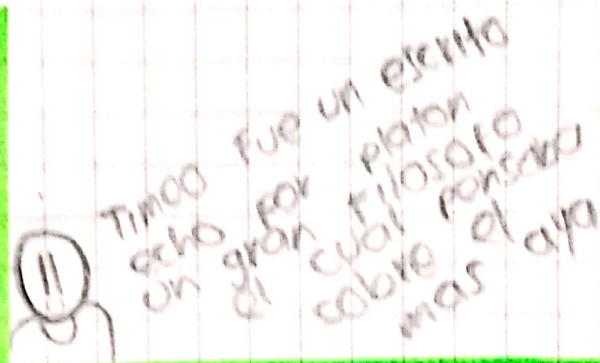 Timeo fue un escrito
echo por platon
un gran filosofo
el cual pensaba
sobre el
mas aya